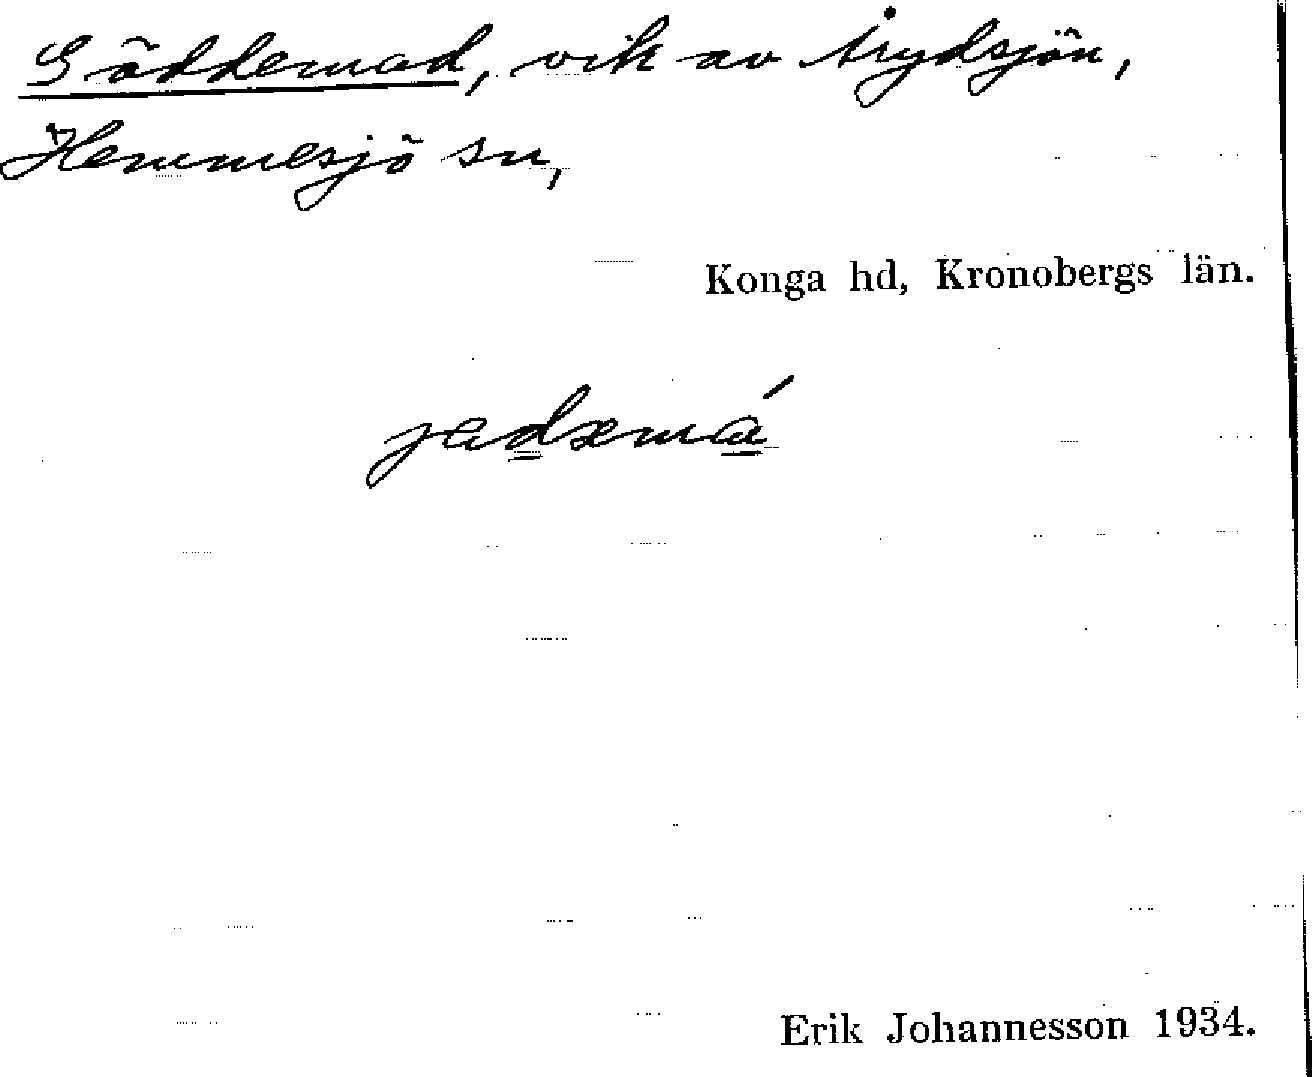 Gäddemad, vik av Årydsjön,
Hemmesjö sn,
Konga hd, Kronobergs län.
Erik Johannesson 1934.